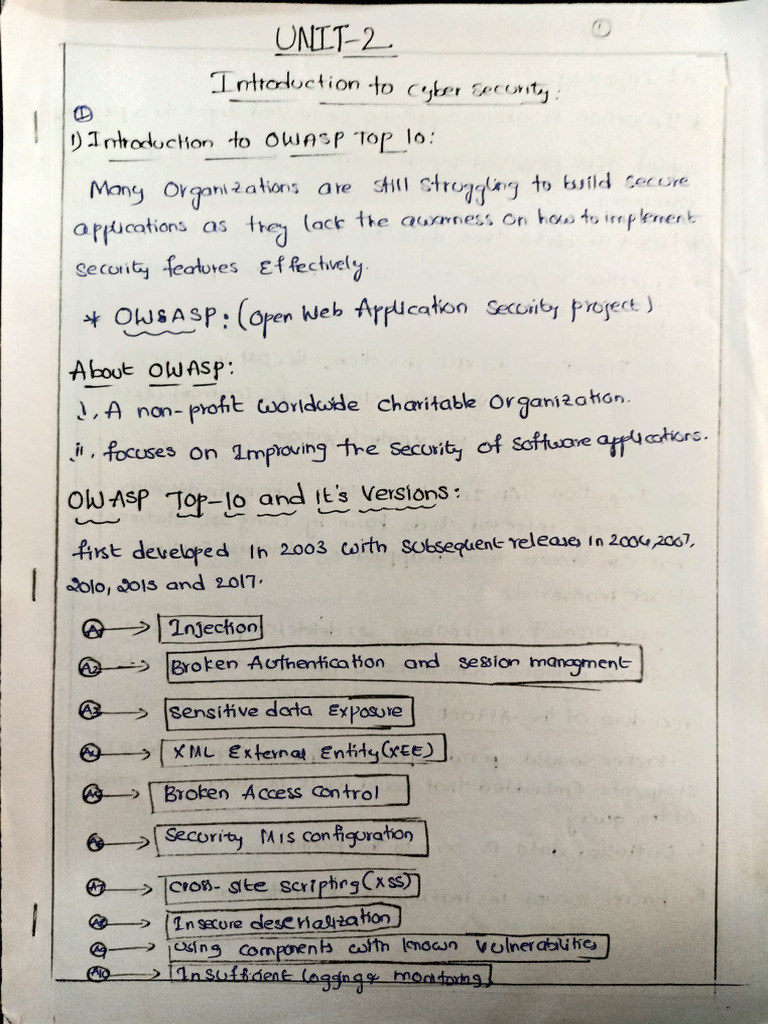 UNIT-2
1
Introduction to Cyber Security:
I
1) Introduction to OWASP TOP 10:
Many Organizations are still struggling to build secure
applications as they lack the awarness on how to implement
security features Effectively.
* OWSASP: (Open Web Application Security project)
About OWASP:
i, A non-profit worldwide charitable Organization.
ii, focuses on Improving the security of software applications.
OWASP Top-10 and it's Versions:
first developed In 2003 with subsequent releases in 2004, 2007,
2010, 2013 and 2017.
A1 → Injection
A2 → Broken Authentication and session managment
A3 → sensitive data Exposure
A4 → XML External Entity(XEE)
A5 → Broken Access control
A6 → Security Mis configuration
A7 → cross-site scripting (XSS)
A8 → Insecure deserialization
A9 → using components with known vulnerabilities
A10 → Insufficient logging & monitoring